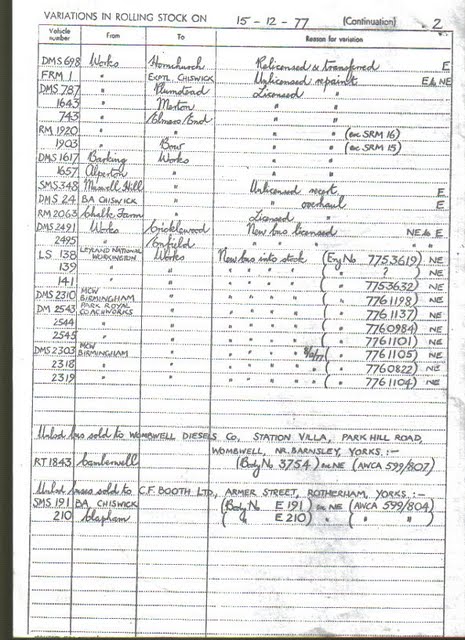 VARIATIONS IN ROLLING STOCK ON 15-12-77 (Continuation) 2
Vehicle number From To Reason for variation
DMS 698 Works Hornchurch Relicensed & transferred E
FRM 1 " EXPTL CHISWICK Unlicensed repaint E to NE
DMS 787 " Plumstead Licensed "
1643 " Merton " "
743 " Elmers End " "
RM 1920 " " " " (ex SRM 16)
1903 " Bow " " (ex SRM 15)
DMS 1617 Barking Works " "
1657 Alperton " " "
SMS 348 Muswell Hill " Unlicensed recert. E
DMS 24 BA CHISWICK " " overhaul E
RM 2063 Chalk Farm " Licensed "
DMS 2491 Works Cricklewood New bus licensed NE to E
2495 " Enfield " " " " "
LS 138 LEYLAND NATIONAL WORKINGTON Works New bus into stock (Eng No 7753619) NE
139 " " " " " " ( " ? ) NE
141 " " " " " " ( " 7753632) NE
DMS 2310 MCW BIRMINGHAM " " " " " ( " 7761198) NE
DM 2543 PARK ROYAL COACHWORKS " " " " " ( " 7761137) NE
2544 " " " " " " ( " 7760984) NE
2545 " " " " " " ( " 7761101) NE
DMS 2303 MCW BIRMINGHAM " " " " " ( " 7761105) NE
2318 " " " " " " ( " 7760822) NE
2319 " " " " " " ( " 7761104) NE
Unlicd bus sold to WOMBWELL DIESELS Co, STATION VILLA, PARK HILL ROAD,
WOMBWELL, NR. BARNSLEY, YORKS. :-
RT 1843 Camberwell (Body No 3754) ex NE (AWCA 599/807)
Unlicd buses sold to C.F. BOOTH LTD, ARMER STREET, ROTHERHAM, YORKS. :-
SMS 191 BA CHISWICK (Body No E 191) ex NE (AWCA 599/804)
210 Clapham ( " E 210) " " ( " " )